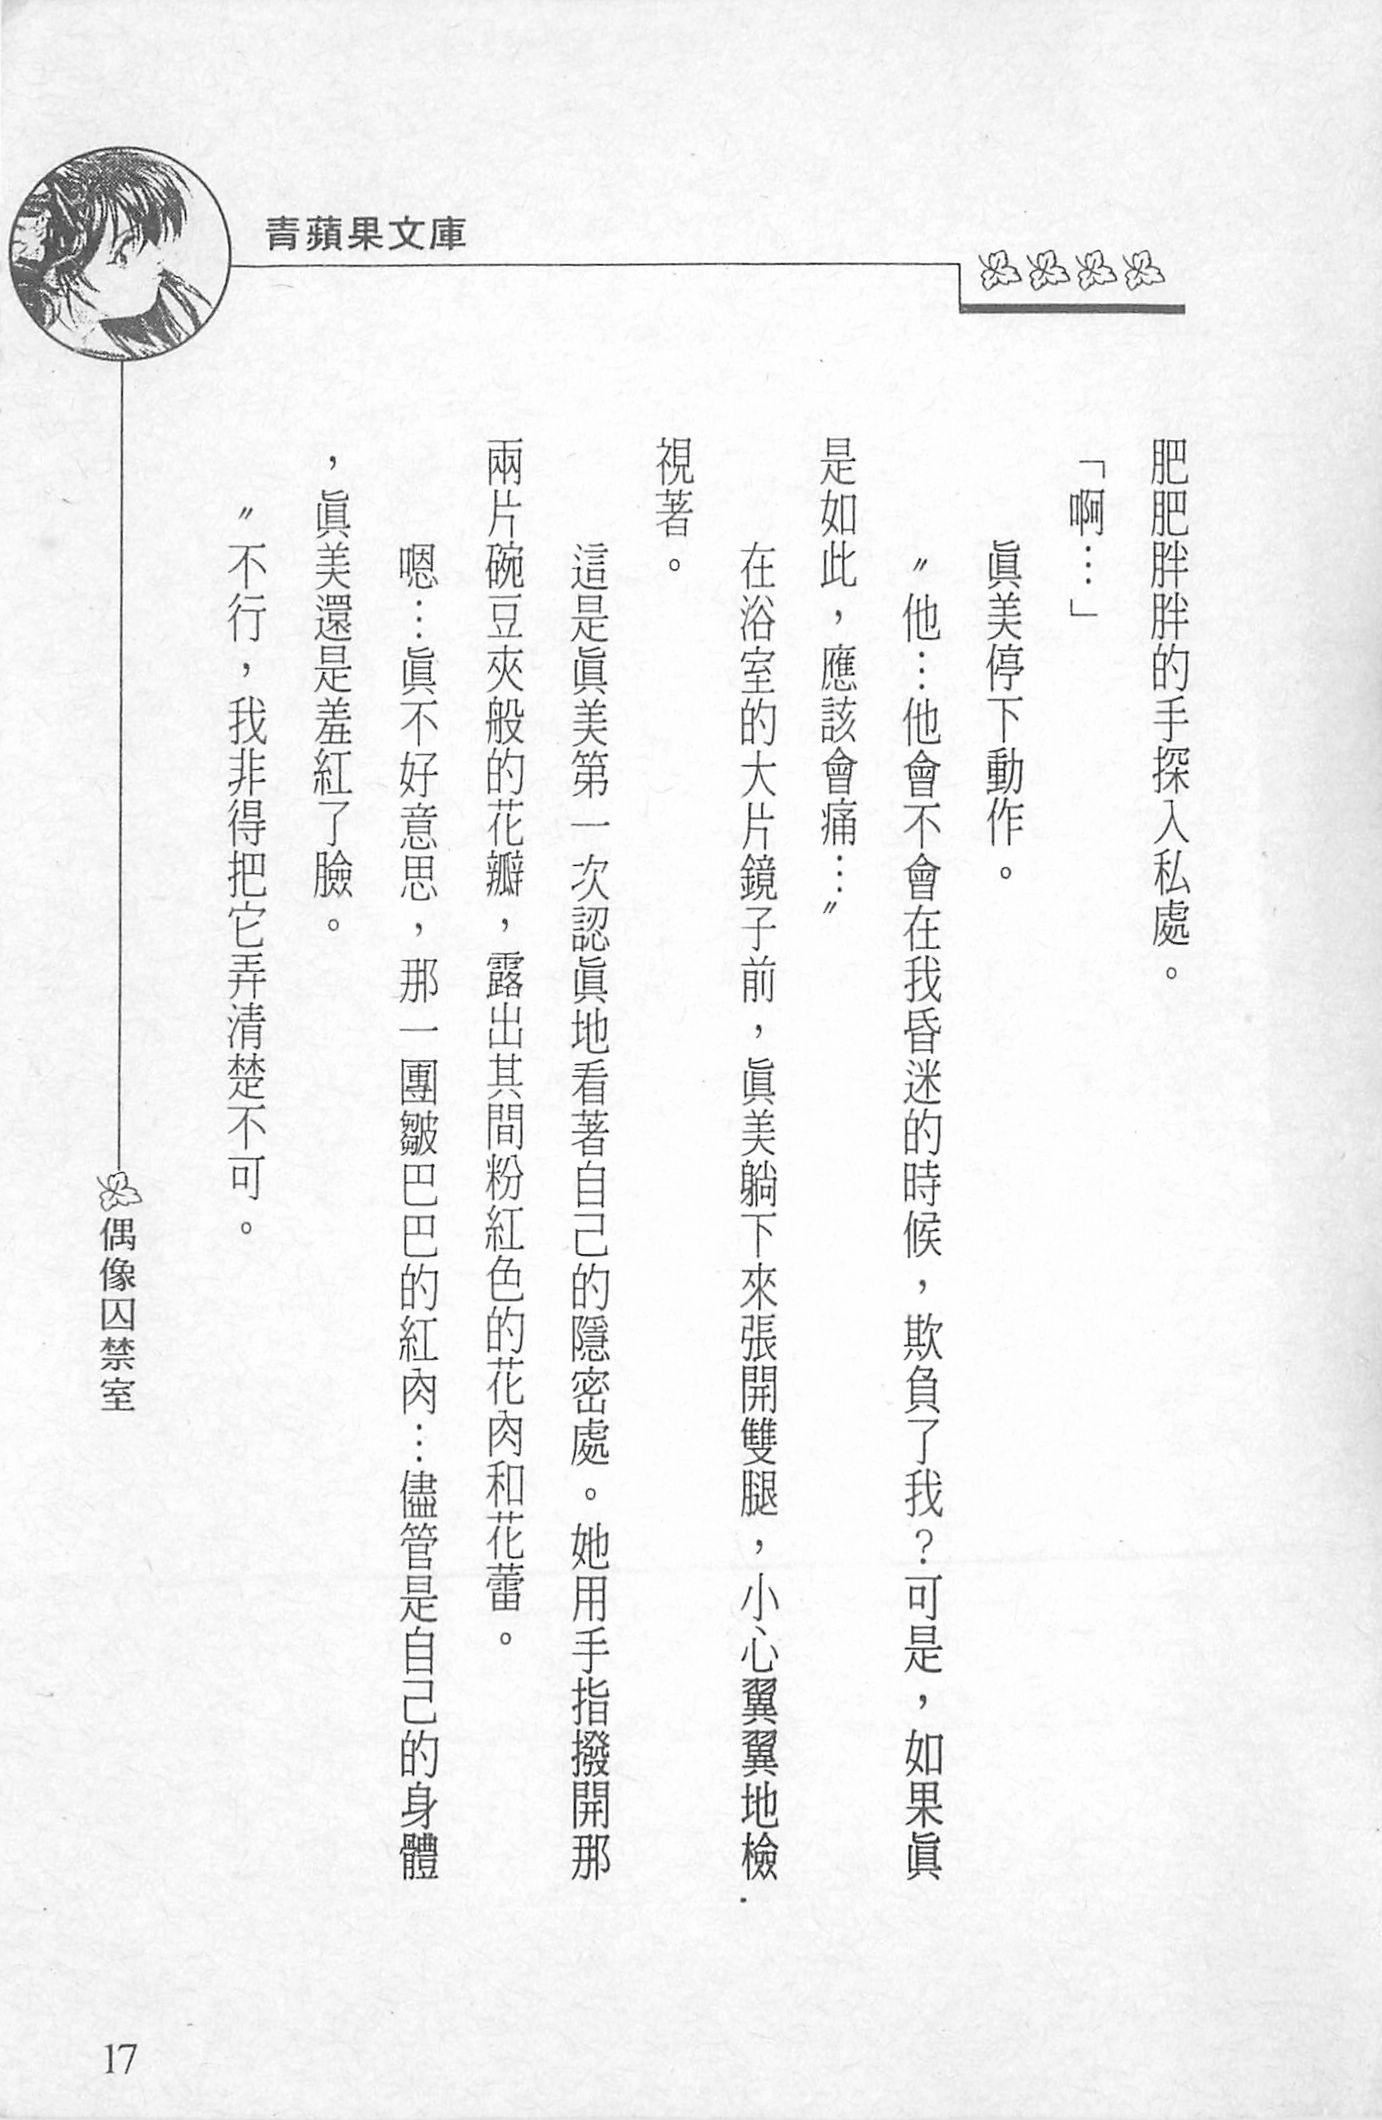 青蘋果文庫
肥肥胖胖的手探入私處。
「啊…」
眞美停下動作。
〝他…他會不會在我昏迷的時候，欺負了我？可是，如果眞
是如此，應該會痛…〞
在浴室的大片鏡子前，眞美躺下來張開雙腿，小心翼翼地檢
視著。
這是眞美第一次認眞地看著自己的隱密處。她用手指撥開那
兩片碗豆夾般的花瓣，露出其間粉紅色的花肉和花蕾。
嗯…眞不好意思，那一團皺巴巴的紅肉…儘管是自己的身體
，眞美還是羞紅了臉。
〝不行，我非得把它弄清楚不可。
偶像囚禁室
17